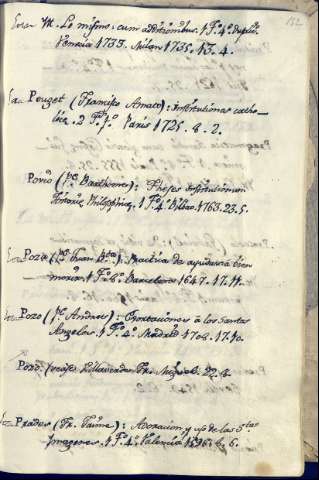 152
Yn. Lo mismo: cum additionibus. 1 Fº 4º
Venecia 1733. Milan 1735. 13. 4.
Pouget (Francisco Amato): Institutiones catho-
licæ. 2 Fº Paris 1725. 8. 2.
Pozo (Pe. Bartholome): Theses
Historiæ Philosophicæ, 1 Fº 4º Bilbao. 1763. 23. 5.
Poza (Pe. Juan Bta): Practica de ayudar a bien
morir, 1 Fº 8º Barcelona 1647. 17. 11.
Pozo (Pe. Andres): Exortaciones à los Santos
Angeles. 1 Fº 4º Madrid 1708. 17. 10.
Pozo. (vease Villaverde Fr. Miguel. 22. 8.
Prades (Fr. Jaime): Adoracion, y uso de las Stas
Imagenes. 1 Fº 4º Valencia 1596. 6. 6.